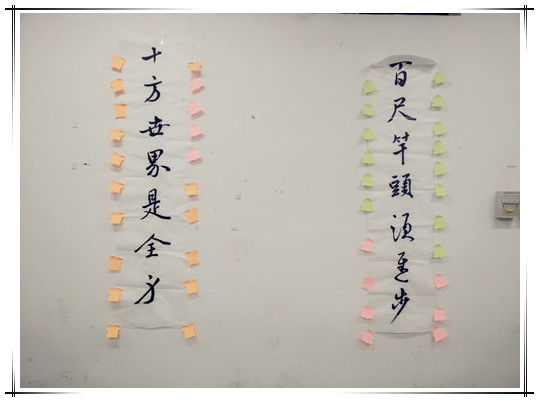 百尺竿頭須進步
十方世界是全身